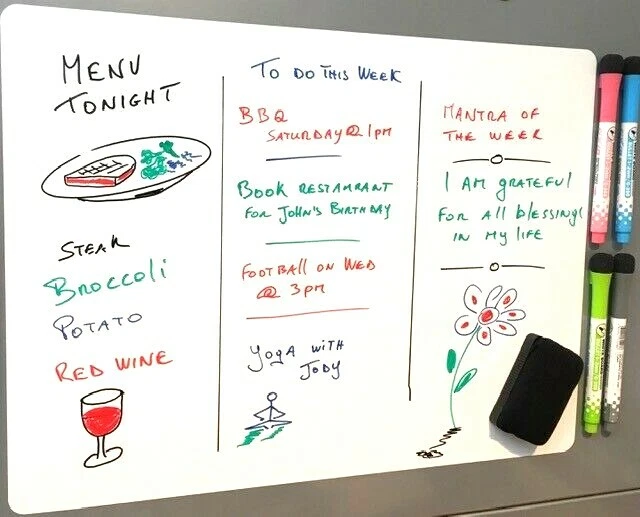 MENU
TONIGHT
STEAK
BROCCOLI
POTATO
RED WINE
TO DO THIS WEEK
BBQ
SATURDAY @ 1PM
BOOK RESTAURANT
FOR JOHN'S BIRTHDAY
FOOTBALL ON WED
@ 3PM
YOGA WITH
JODY
MANTRA OF
THE WEEK
I AM GRATEFUL
FOR All blESSINGS
IN MY LIFE